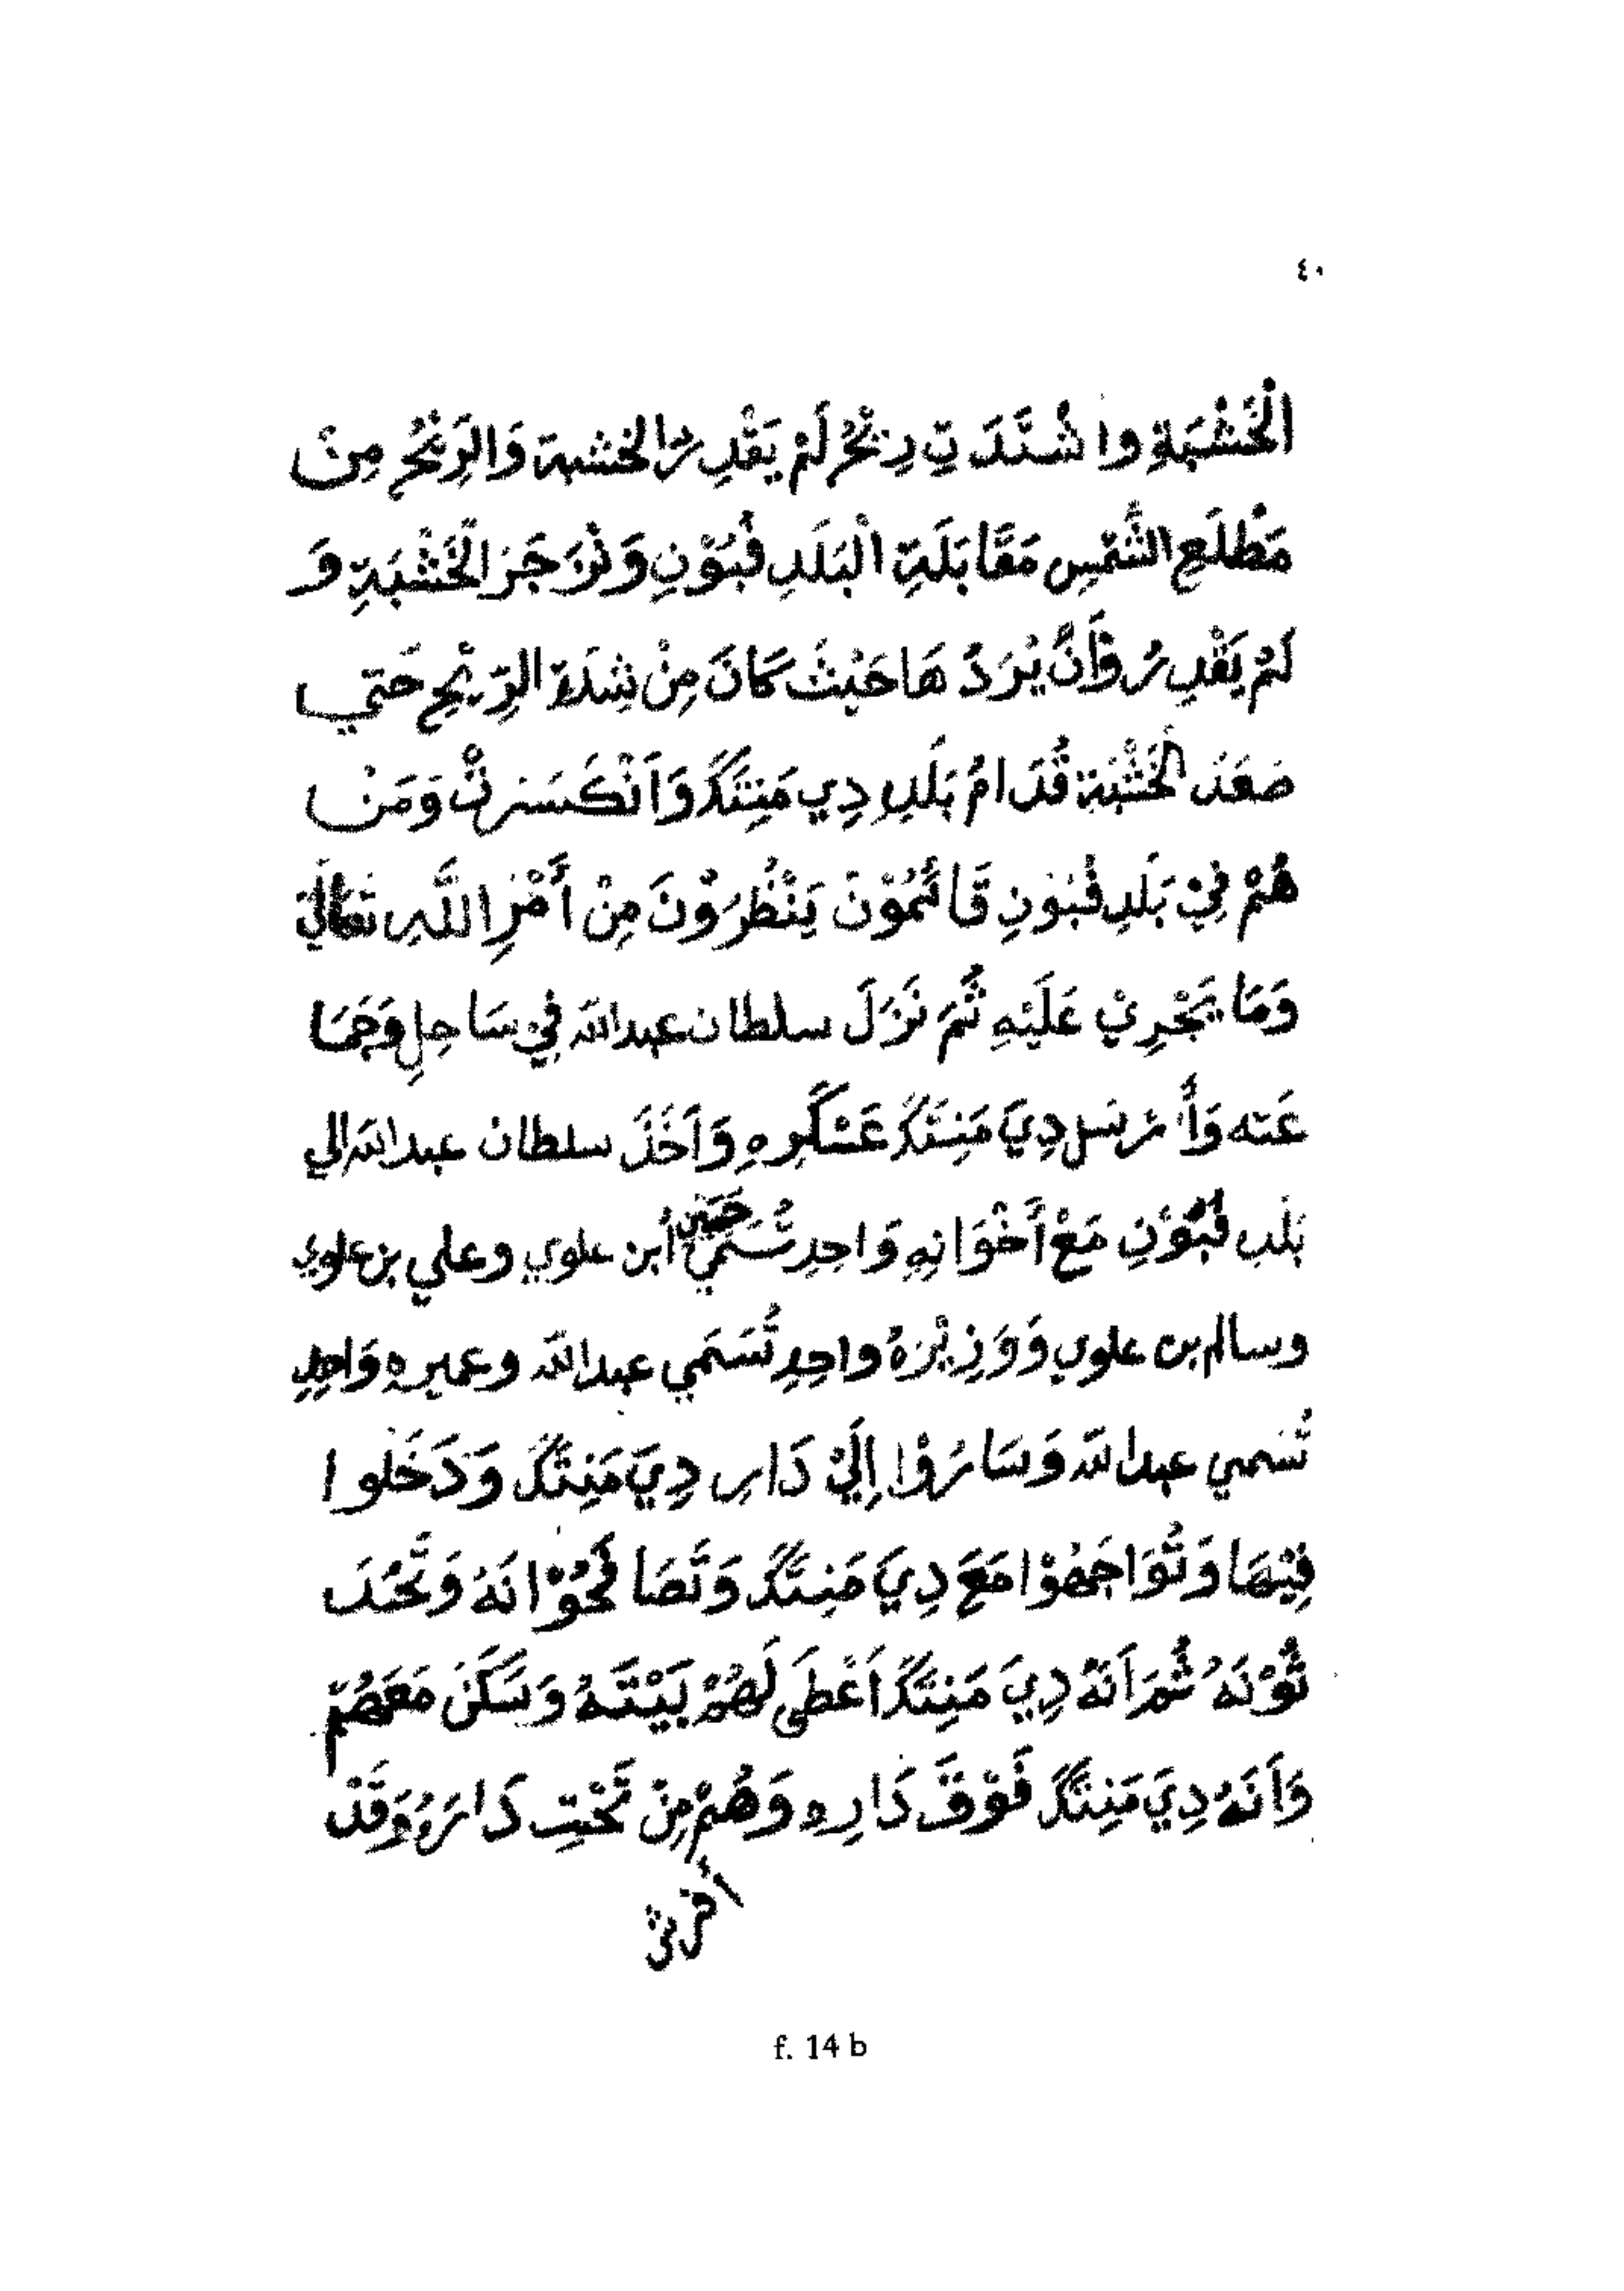 ٤٠
الْخَشْبَةِ واشْتَدَتِ رِيْحُ لَمْ يَقْدِرُ الخشبة وَالرِيْحُ مِنْ
مَطْلَعِ الشَّمْسِ مَقَابَلَةِ الْبَلَدِ فُبُوْنِ وَنْزَجَرَ الْخَشْبَةِ وَ
لَمْ يَقْدِرُوْا أَنْ يُرَدُّ هَا حَيْثَ كَانَ مِنْ شِدَةِ الرِّيْحِ حَتى
صَعَدَ الْخَشْبَة قُدَامُ بَلَدِ دِي مَنِتَكَ وَاَنْكَسَرتْ وَمَنْ
هُمْ فِيْ بَلَدِ فُبُوْنِ قَائمُوْنَ يَنْظُرُوْنَ مِنْ أَمْرِ اللَّهِ تعَالَى
وَمَا يَجْرِيْ عَلَيْهِ ثُمَ نَزَلَ سلطان عبدالله فِيْ سَاحِلِ وَجَمَا
عَته وَأرْسَل دِيَ مَنِتَكَ عَسْكَرِهِ وَاَخَلَ سلطان عبدالله الي
بَلَدِ فُبُوْنِ مَعْ أَخْوَانِهِ وَاحِدِ تُسَمَّيْ حَسَيْن أبن علوي وعلي بن علوي
وسالم بن علوي وَوَزِيْرَهُ واحِدِ تُسَمَي عبدالله وعميره وَاحِدِ
تُسَمي عبدالله وَسَارُوْا إِلَيْ دَارِ دِيَ مَنِتَكَ وَدَخَلوا
فِيْهَا وَتُوَاجَهُوْا مَعَ دِيَ مَنِتَكَ وَتَصَافَحُوْانَهُ وَتَّحُدَ
ثُوْنَهُ ثُمَ اَنَهُ دِيَ مَنِتَكَ اَعْطَى لَهُمْ بَيْتَهُ وَسَكَنَ مَعَهُمْ
وَاَنَهُ دِيَ مَنِتَكَ فَوْقَ دَارِهِ وَهُمْ مِنْ تَحْتِ دَارَهُ وَقَدْ
f. 14 b